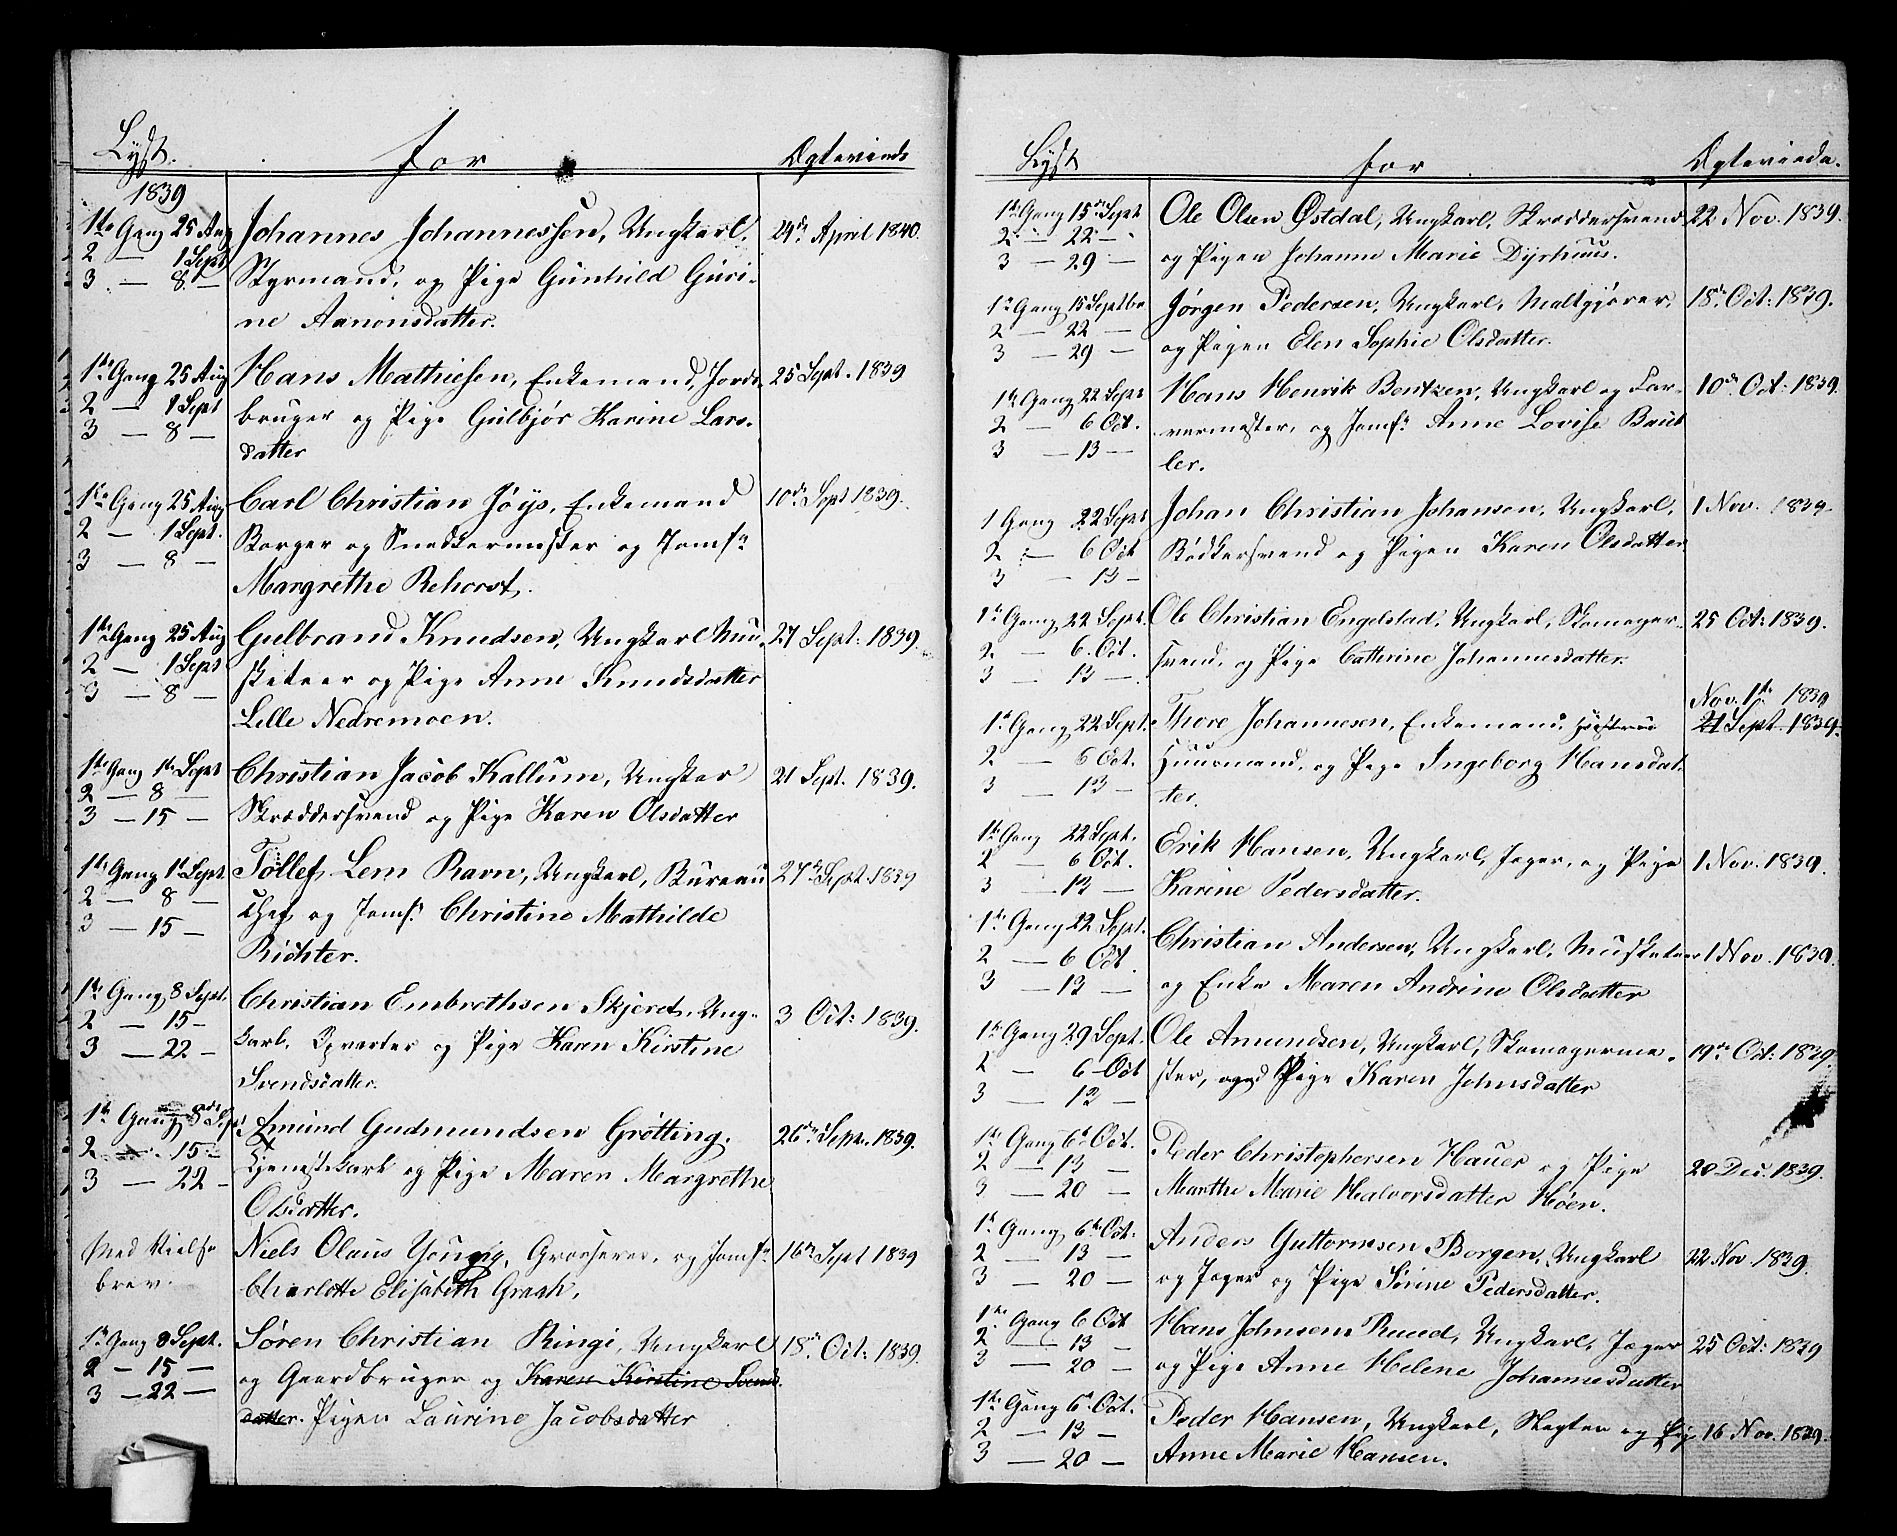 Lyst. for Ægteviede
1839
1te Gang 25 Aug Johannes Johannessen, Ungkarl, 24de April 1840.
2 — 1 Sept Styrmand, og Pige Gunhild Guri-
3 — 8 — ne Aanonsdatter.
1te Gang 25 Aug Hans Mathiesen, Enkemand, Jord- 25 Sept. 1839
2 — 1 Sept bruger og Pige Gulbjør Karine Lars-
3 — 8 — datter
1te Gang 25 Aug Carl Christian Jøys, Enkemand 10de Sept 1839.
2 — 1 Sept. Borger og Snedkermester og Jomfr
3 — 8 — Margrethe Rehorst.
1te Gang 25 Aug Gulbrand Knudsen, Ungkarl Mu- 27 Sept: 1839.
2 — 1 Sept sketeer og Pige Anne Knudsdatter
3 — 8 — Lille Nedremoen.
1te Gang 1te Sept Christian Jacob Kallum, Ungkar 21 Sept. 1839.
2 — 8 — Skræddersvend og Pige Karen Olsdatter
3 — 15 —
1te Gang 1t Sept. Tollef Lem Ravn, Ungkarl, Bureau 27de Sept. 1839
2 — 8 — Chef og Jomfr Christine Mathilde
3 — 15 — Richter.
1te Gang 8 Sept. Christian Embrethsen Skjeret, Ung- 3 Oct: 1839.
2 — 15 — karl, Opvarter og Pige Karen Kirstine
3 — 22 — Svendsdatter.
1te Gang 8de Sept Amund Gudmundsen Grøtting, 26de Sept. 1839.
2 — 15 — Tjenestekarl og Pige Maren Margrethe
3 — 22 — Olsdatter.
Med Vielse Niels Olaus Young, Grosserer, og Jomfr 16de Sept 1839
brev. Charlotte Elisabeth Grash.
1te Gang 8 Sept. Søren Christian Ringi, Ungkarl 18de Oct: 1839.
2 — 15 — og Gaardbruger og Karen Kirstine Svends
3 — 22 — datter. Pigen Laurine Jacobsdatter
Lyst for Ægteviede.
1te Gang 15de Sept Ole Olsen Østdal, Ungkarl, Skræddersvend 22 Nov. 1839.
2 — 22 — og Pigen Johanne Marie Dyrhuus.
3 — 29 —
1te Gang 15 Septbr Jørgen Pedersen, Ungkarl, Maltgjører, 18de Oct: 1839.
2 — 22 — og Pigen Elen Sophie Olsdatter.
3 — 29 —
1te Gang 22 Sept Hans Henrik Bentzen, Ungkarl og Far- 10de Oct: 1839.
2 — 6 Oct. vermester, og Jomfr Anne Lovise Baut
3 — 13 — ler.
1 Gang 22 Sept Johan Christian Johansen, Ungkarl, 1 Nov. 1839
2 — 6 Oct Bødkersvend og Pigen Karen Olsdatter
3 — 13 —
1te Gang 22 Sept. Ole Christian Engelstad, Ungkarl, Skomager- 25 Oct: 1839.
2 — 6. Oct. svend, og Pige Cathrine Johannesdatter.
3 — 13 —
Nov. 1te 1839
1t Gang 22 Sept. Thore Johannesen, Enkemand 21 Sept. 1839.
2 — 6 Oct. Huusmand, og Pige Ingeborg Hansdat-
3 — 13 — ter.
1te Gang 22 Sept. Erik Hansen, Ungkarl, Jæger, og Pige 1 Nov. 1839.
2 — 6 Oct. Karine Pedersdatter.
3 — 13 —
1te Gang 22 Sept. Christian Andersen, Ungkarl, Musketeer 1 Nov. 1839.
2 — 6 Oct. og Enke Maren Andrine Olsdatter
3 — 13 —
1te Gang 29 Sept. Ole Amundsen, Ungkarl, Skomagerme- 19de Oct: 1839.
2 — 6 Oct ster, og Pige Karen Johnsdatter
3 — 13 —
1te Gang 6t Oct. Peder Christophersen Hauer og Pige 20 Dec. 1839.
2 — 13 — Marthe Marie Halvorsdatter Høen.
3 — 20 —
1t Gang 6te Oct. Anders Guttormsen Borgen, Ungkarl 22 Nov 1839.
2 — 13 — og Jæger og Pige Sirine Pedersdatter.
3 — 20 —
1te Gang 6 Oct Hans Johnsen Ruud, Ungkarl, Jæger 25 Oct: 1839
2 — 13 — og Pige Anne Helene Johannesdatter
3 — 20 —
1te Gang 6te Oct. Peder Hansen, Ungkarl, Slagter og Pige 16 Nov. 1839.
2 — 13 — Anne Marie Hansen.
3 — 20 —